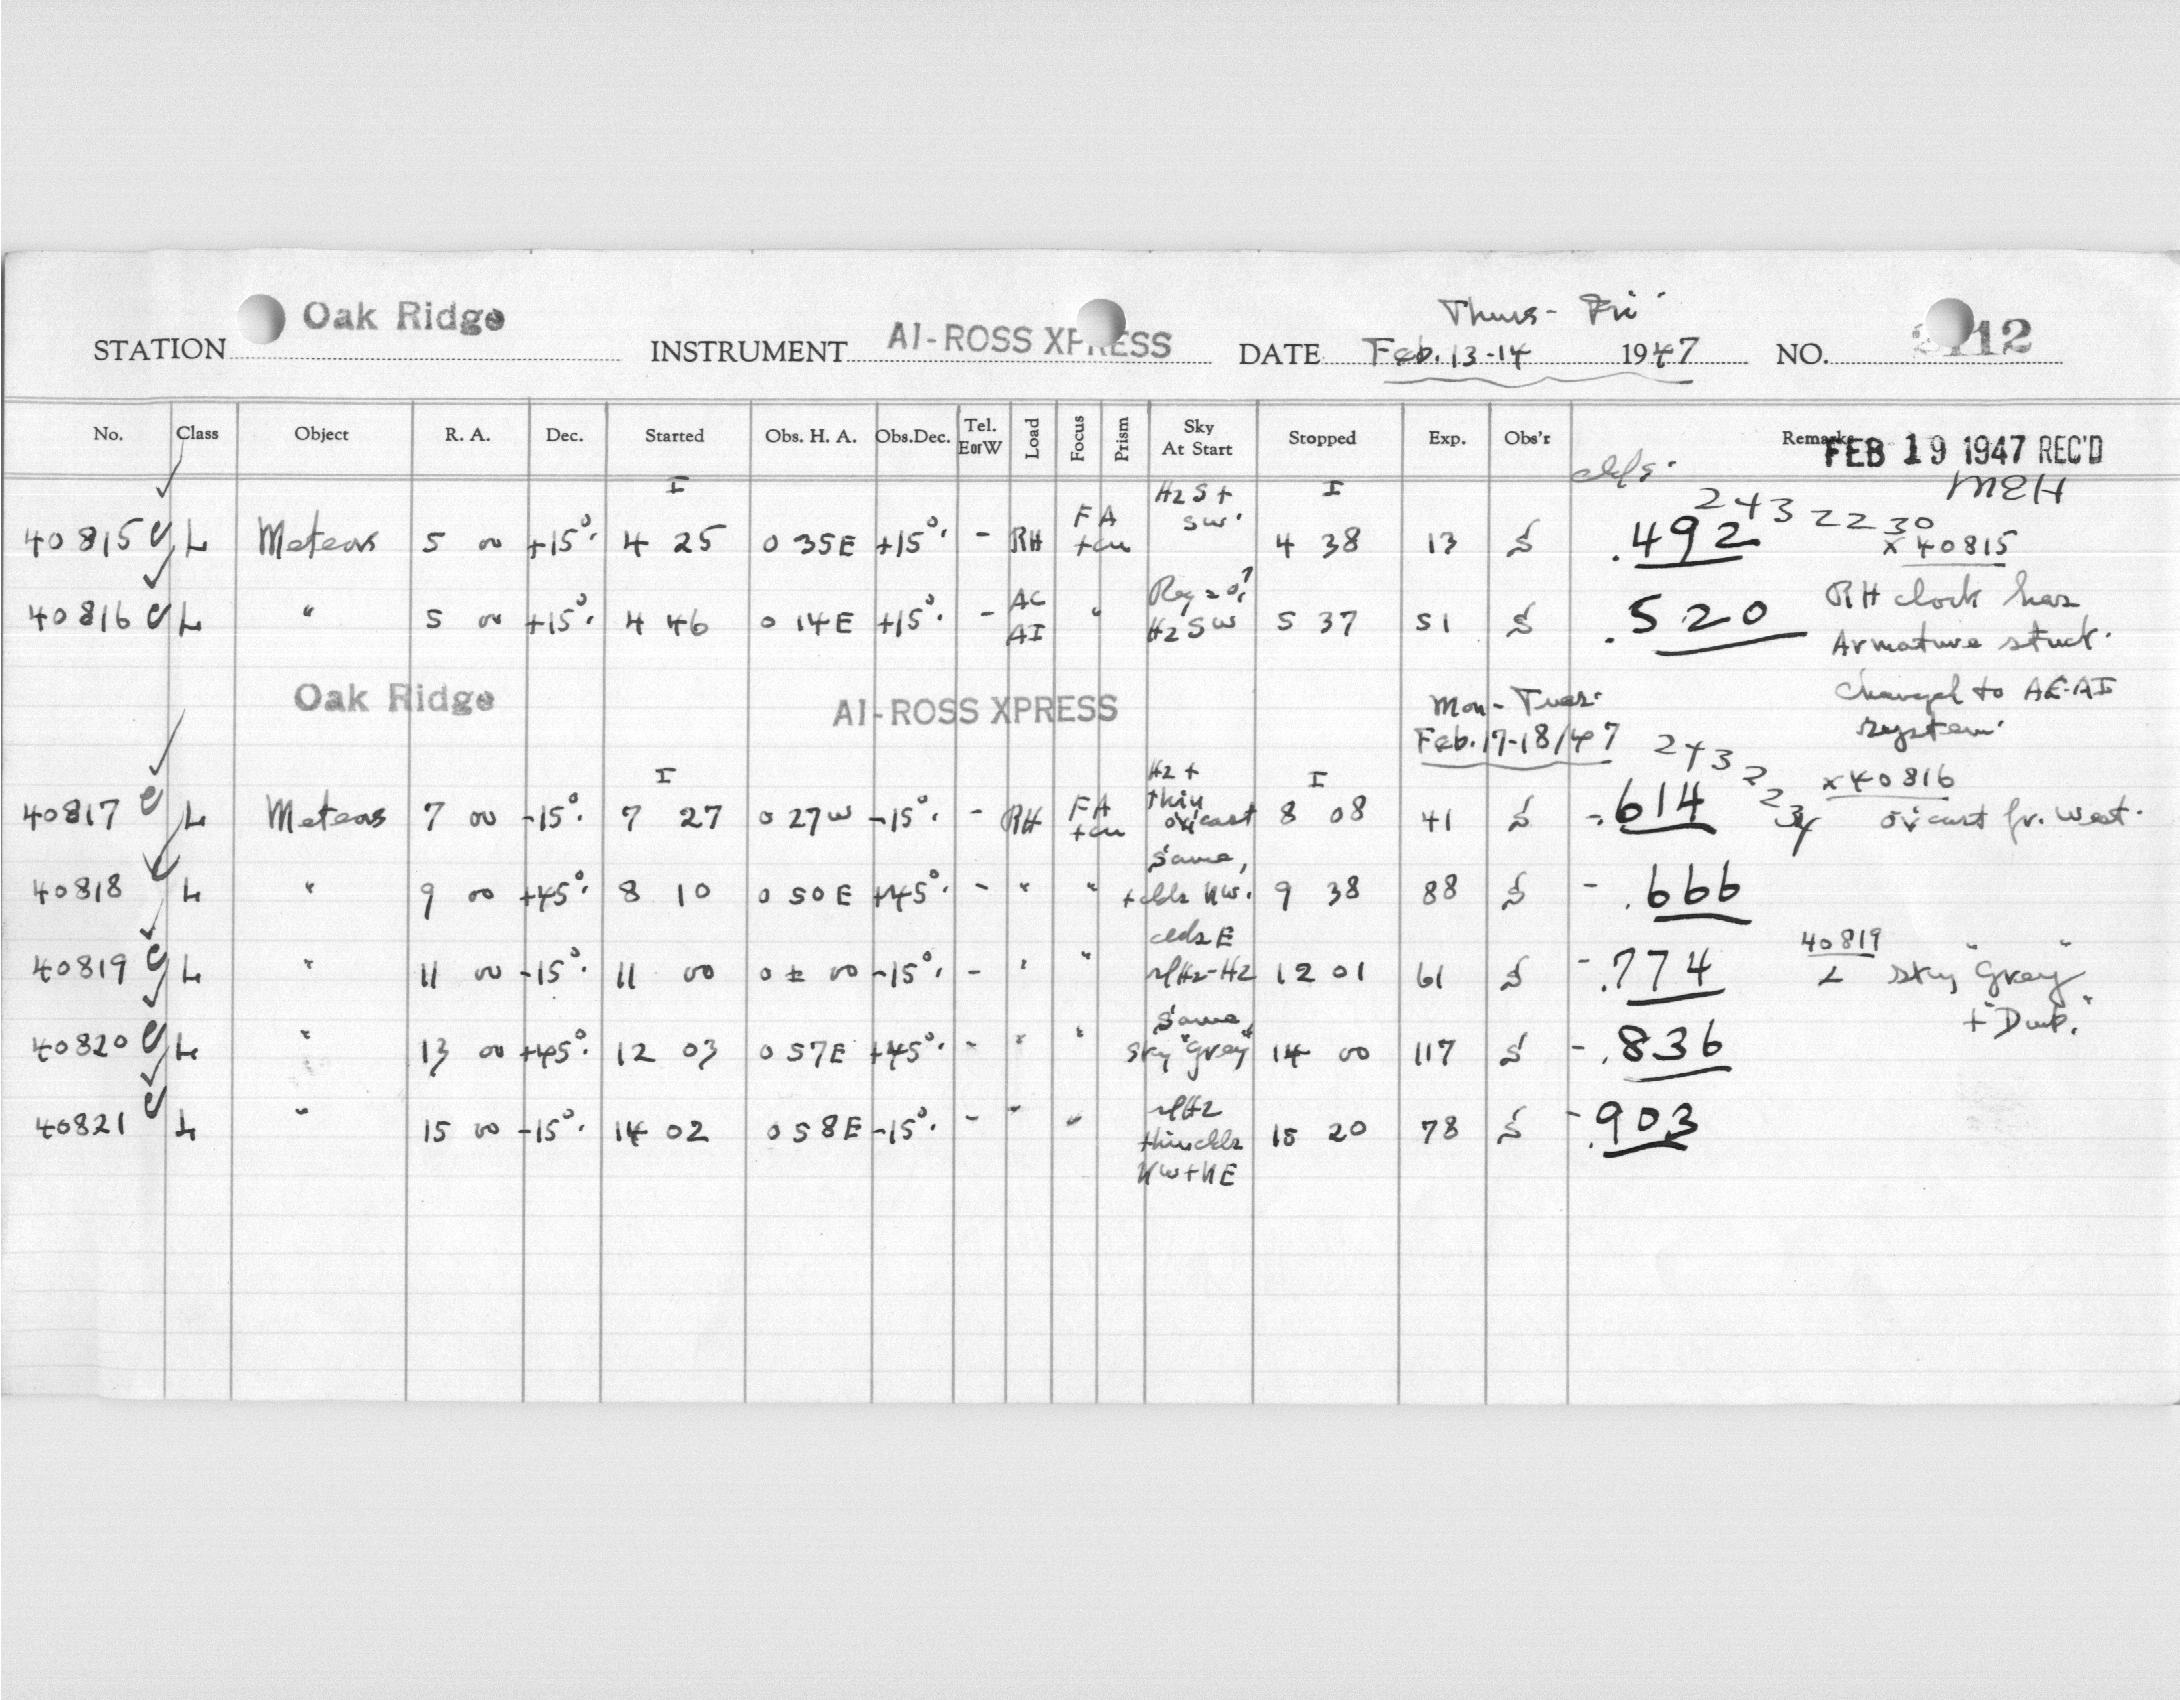 Oak Ridge
Thurs - Fri
STATION INSTRUMENT AI-ROSS XPRESS DATE Feb. 13-14 1947 NO. 12
No. Class Object R. A. Dec. Started Obs. H. A. Obs.Dec. Tel. EorW Load Focus Prism Sky At Start Stopped Exp. Obs'r Remarks
FEB 19 1947 REC'D
MEH
I H2 S + I 24 32230
40815 L Meteors 5 00 +15°. 4 25 0 35E +15°. - RH FA + cu SW. 4 38 13 S .492 x 40815
40816 L " 5 00 +15°. 4 46 0 14E +15°. - AC AI " H2 SW 5 37 51 S .520 RH clock has
Armature stuck.
changed to AC-AI
system.
Oak Ridge AI-ROSS XPRESS Mon - Tues.
Feb. 17-18/47
I H2 + I 243 223 x 40816
40817 L Meteors 7 00 -15°. 7 27 0 27W -15°. - RH FA + cu thin ov'cast 8 08 41 S - .614 ov'cast fr. West.
40818 L " 9 00 +45°. 8 10 0 50E +45°. - " " Same, + clds NW. 9 38 88 S - .666
40819 L " 11 00 -15°. 11 00 0 ± 00 -15°. - " " clds E slH2-H2 12 01 61 S - .774 40819 L sky "Grey"
+ "Dark."
40820 L " 13 00 +45°. 12 03 0 57E +45°. - " " Same, sky "Grey" 14 00 117 S - .836
40821 L " 15 00 -15°. 14 02 0 58E -15°. - " " slH2 thin clds NW + NE 15 20 78 S - .903